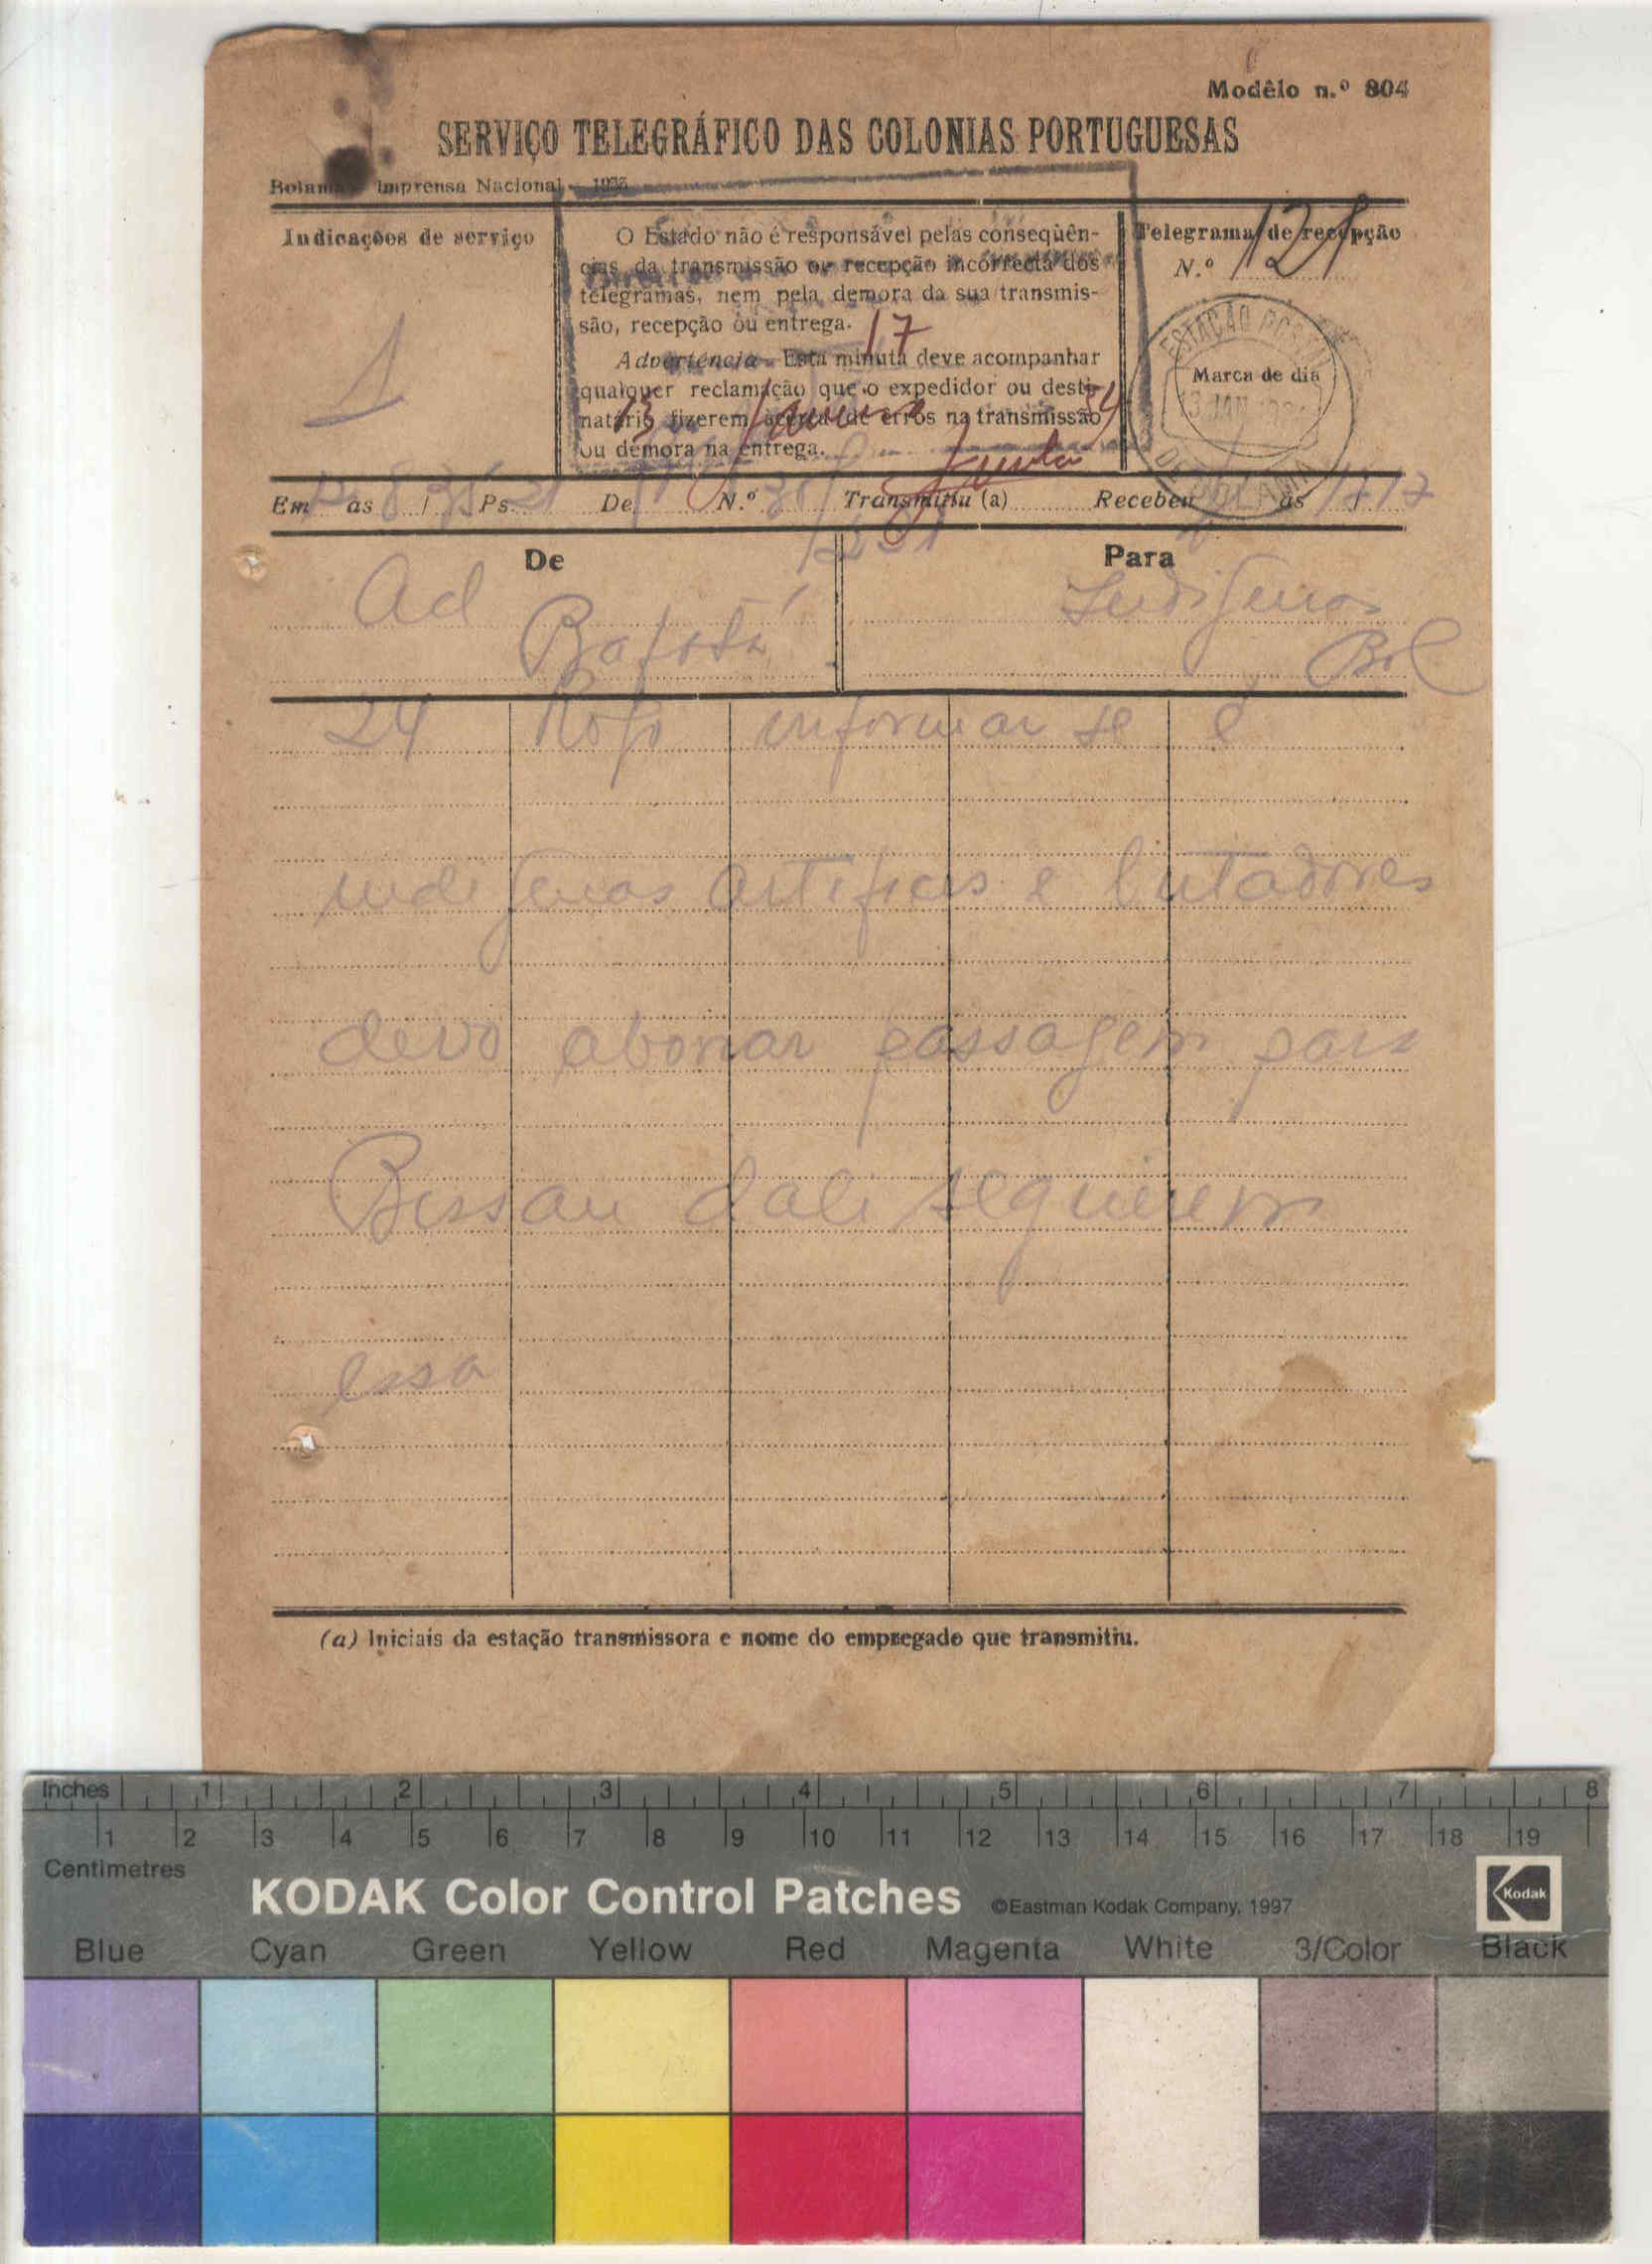 Modêlo n.º 804
SERVIÇO TELEGRÁFICO DAS COLONIAS PORTUGUESAS
Imprensa Nacional
Indicações de serviço
1
O Estado não é responsável pelas conseqüên-
cias da transmissão ou recepção incorrecta dos
telegramas, nem pela demora da sua transmis-
são, recepção ou entrega.
17
Advertência - Esta minuta deve acompanhar
qualquer reclamação que o expedidor ou desti-
natário fizerem àcerca de erros na transmissão
ou demora na entrega.
13 Janeiro
Telegrama de recepção
N.º 121
ESTAÇÃO
Marca de dia
13 JAN
Em às Ps. De N.º Transmitiu (a) Recebeu às 17 17
De
Ad
Bafatá
Para
Indigenas
Bol
24 Rogo informar se é
indigenas artifices e lutadores
devo abonar passagem para
Bissau dali seguirem
essa
(a) Iniciais da estação transmissora e nome do empregado que transmitiu.
Inches 1 2 3 4 5 6 7 8
1 2 3 4 5 6 7 8 9 10 11 12 13 14 15 16 17 18 19
Centimetres
KODAK Color Control Patches ©Eastman Kodak Company, 1997 Kodak
Blue Cyan Green Yellow Red Magenta White 3/Color Black